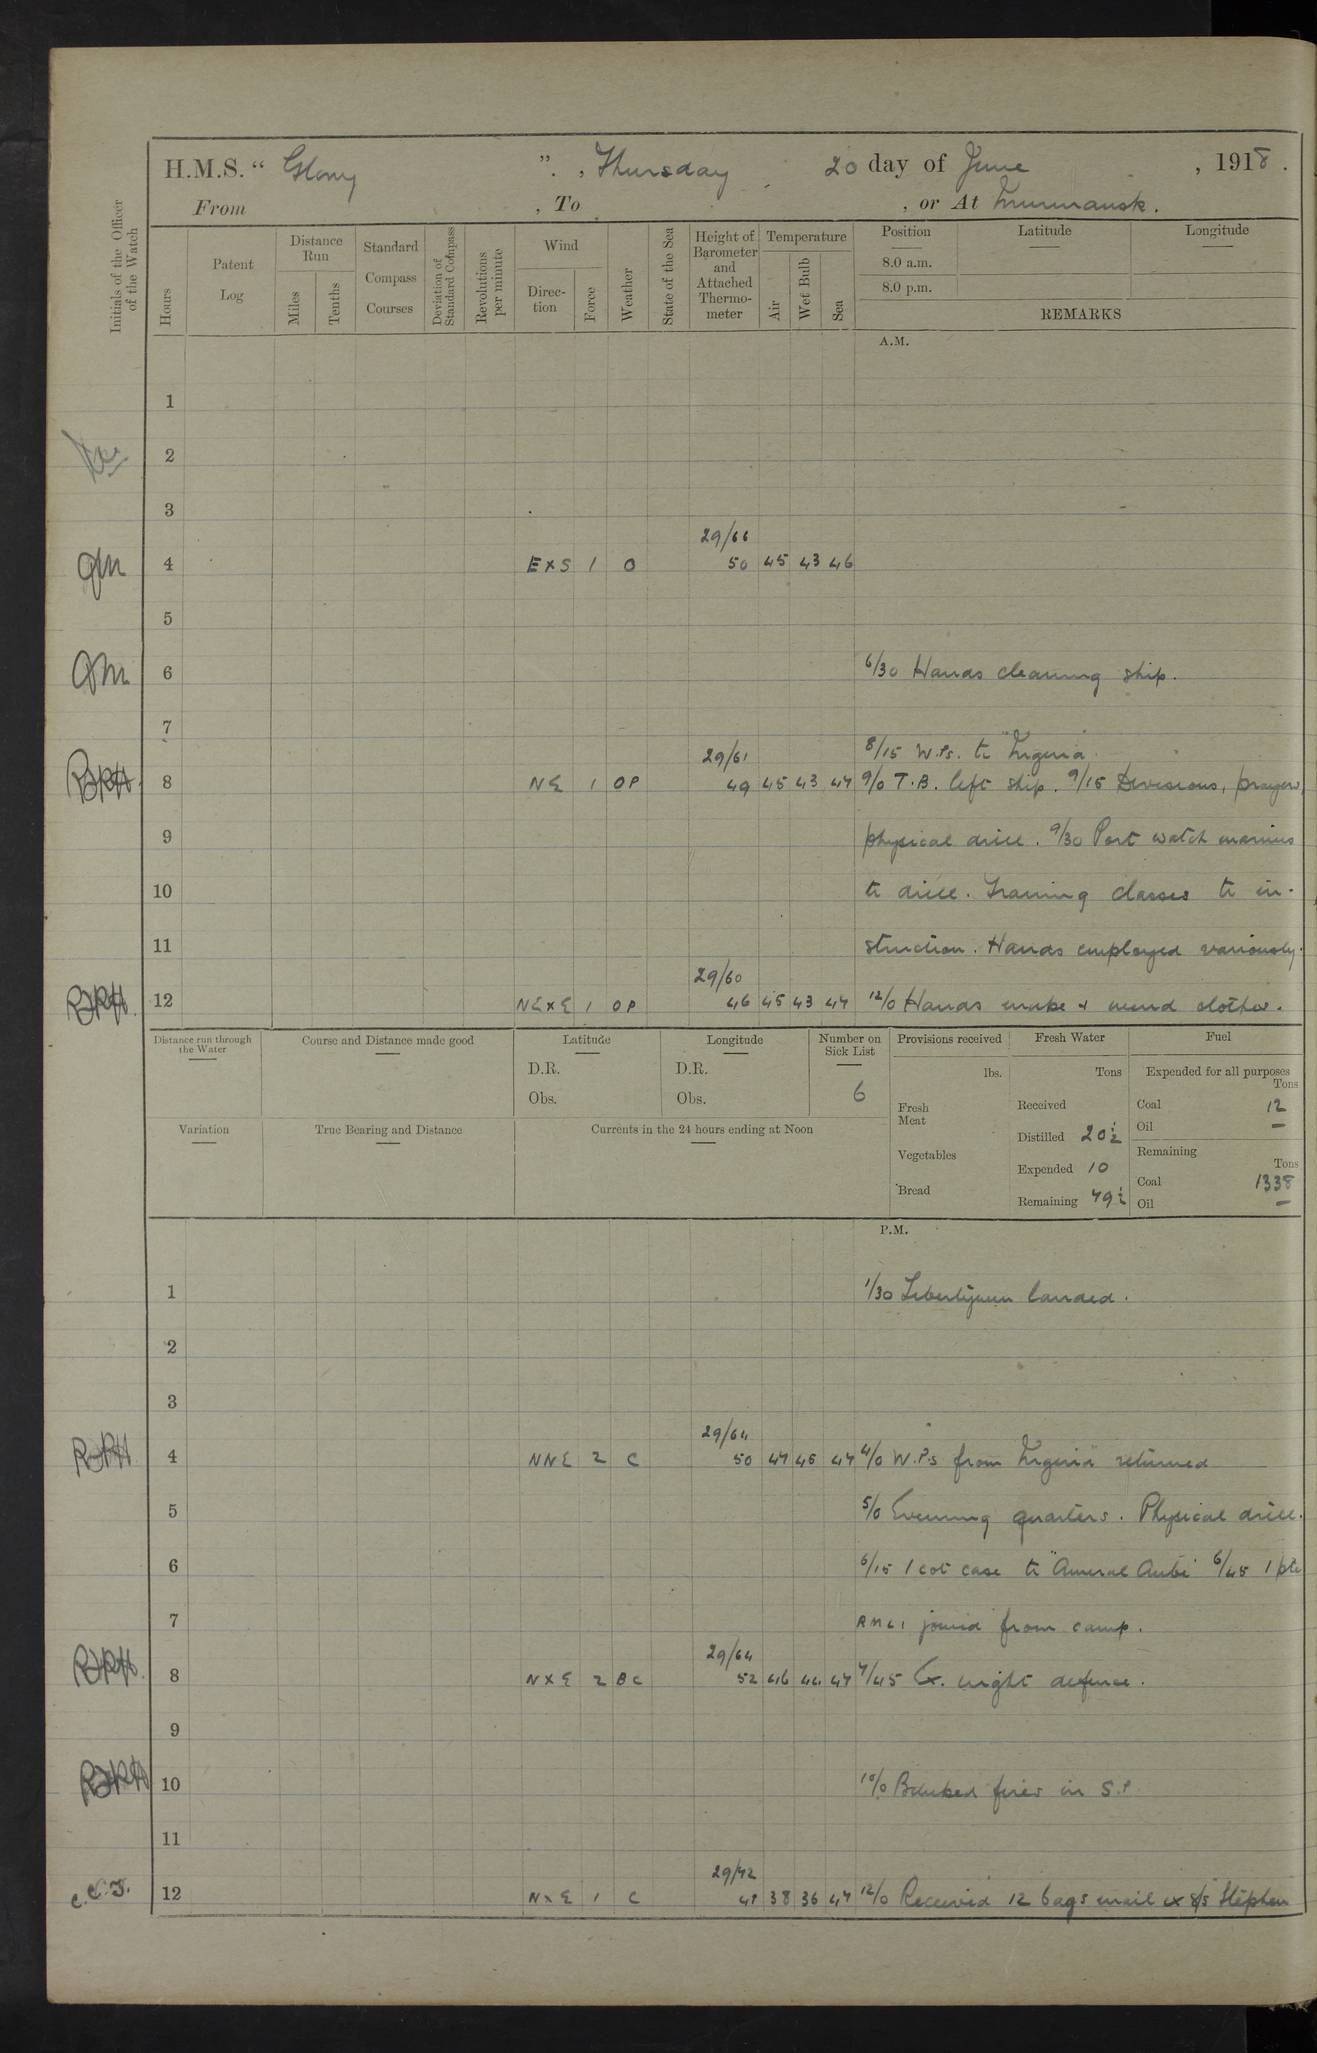 H.M.S. “ Glory ”, Thursday 20 day of June, 1918.
From , To , or At Murmansk.
Initials of the Officer of the Watch
Hours
Patent Log
Distance Run
Miles
Tenths
Standard Compass Courses
Deviation of Standard Compass
Revolutions per minute
Wind
Direction
Force
Weather
State of the Sea
Height of Barometer and Attached Thermometer
Temperature
Air
Wet Bulb
Sea
Position
Latitude
Longitude
8.0 a.m.
8.0 p.m.
REMARKS
A.M.
1
2
3
29/66
4 E x S 1 O 50 45 43 46
5
6 6/30 Hands cleaning ship.
7
8/15 W.Ps. to "Nigeria"
29/61
8 NE 1 OP 49 45 43 47 9/0 T.B. left ship. 9/15 Divisions, prayers,
9 physical drill. 9/30 Port watch marines
10 to drill. Training classes to in-
11 struction. Hands employed variously.
29/60
12 NE x E 1 OP 46 45 43 47 12/0 Hands make & mend clothes.
Distance run through the Water
Course and Distance made good
Latitude
D.R.
Obs.
Longitude
D.R.
Obs.
Number on Sick List
6
Provisions received
lbs.
Fresh Meat
Vegetables
Bread
Fresh Water
Tons
Received
Distilled 20½
Expended 10
Remaining 79½
Fuel
Expended for all purposes
Tons
Coal 12
Oil —
Remaining
Tons
Coal 1338
Oil —
Variation
True Bearing and Distance
Currents in the 24 hours ending at Noon
P.M.
1 1/30 Libertymen landed.
2
3
29/64
4 NNE 2 C 50 47 45 47 4/0 W.P.s from "Nigeria" returned
5 5/0 Evening quarters. Physical drill.
6 6/15 1 cot case to "Amiral Aube" 6/45 1 pte
7 RMLI joined from camp.
29/64
8 N x E 2 BC 52 46 44 47 7/45 Ex. night defence.
9
10 10/0 Banked fires in S.P
11
29/72
C.C.J. 12 N x E 1 C 49 38 36 47 12/0 Received 12 bags mail ex s/s Stephen